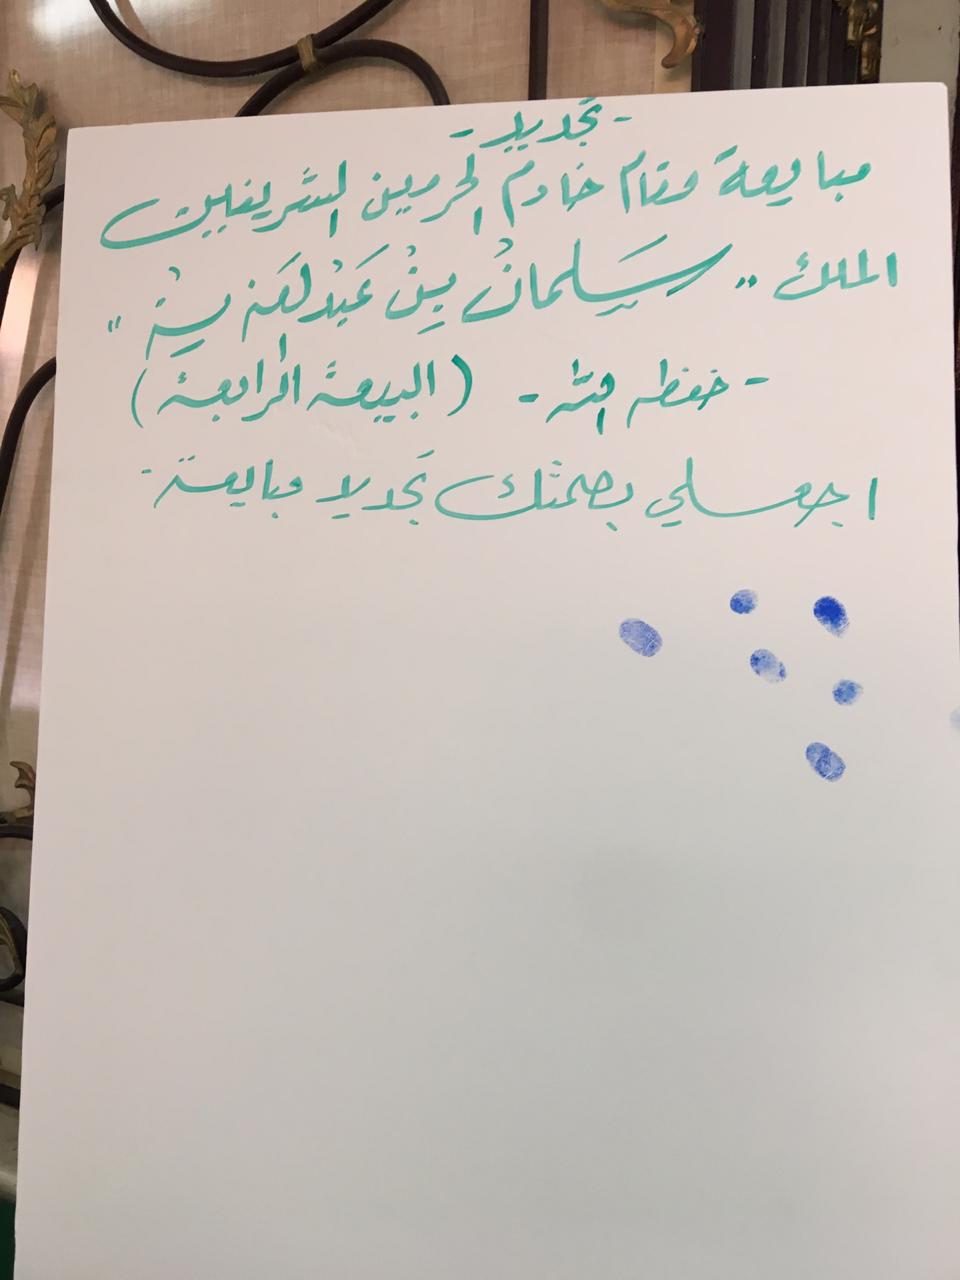 - تجديد -
مبايعة مقام خادم الحرمين الشريفين
الملك " سَلمانْ بِنْ عَبدْ لعَزيزْ "
- حفظه الله - (البيعة الرابعة)
اجعلي بصمتك تجديد مبايعة